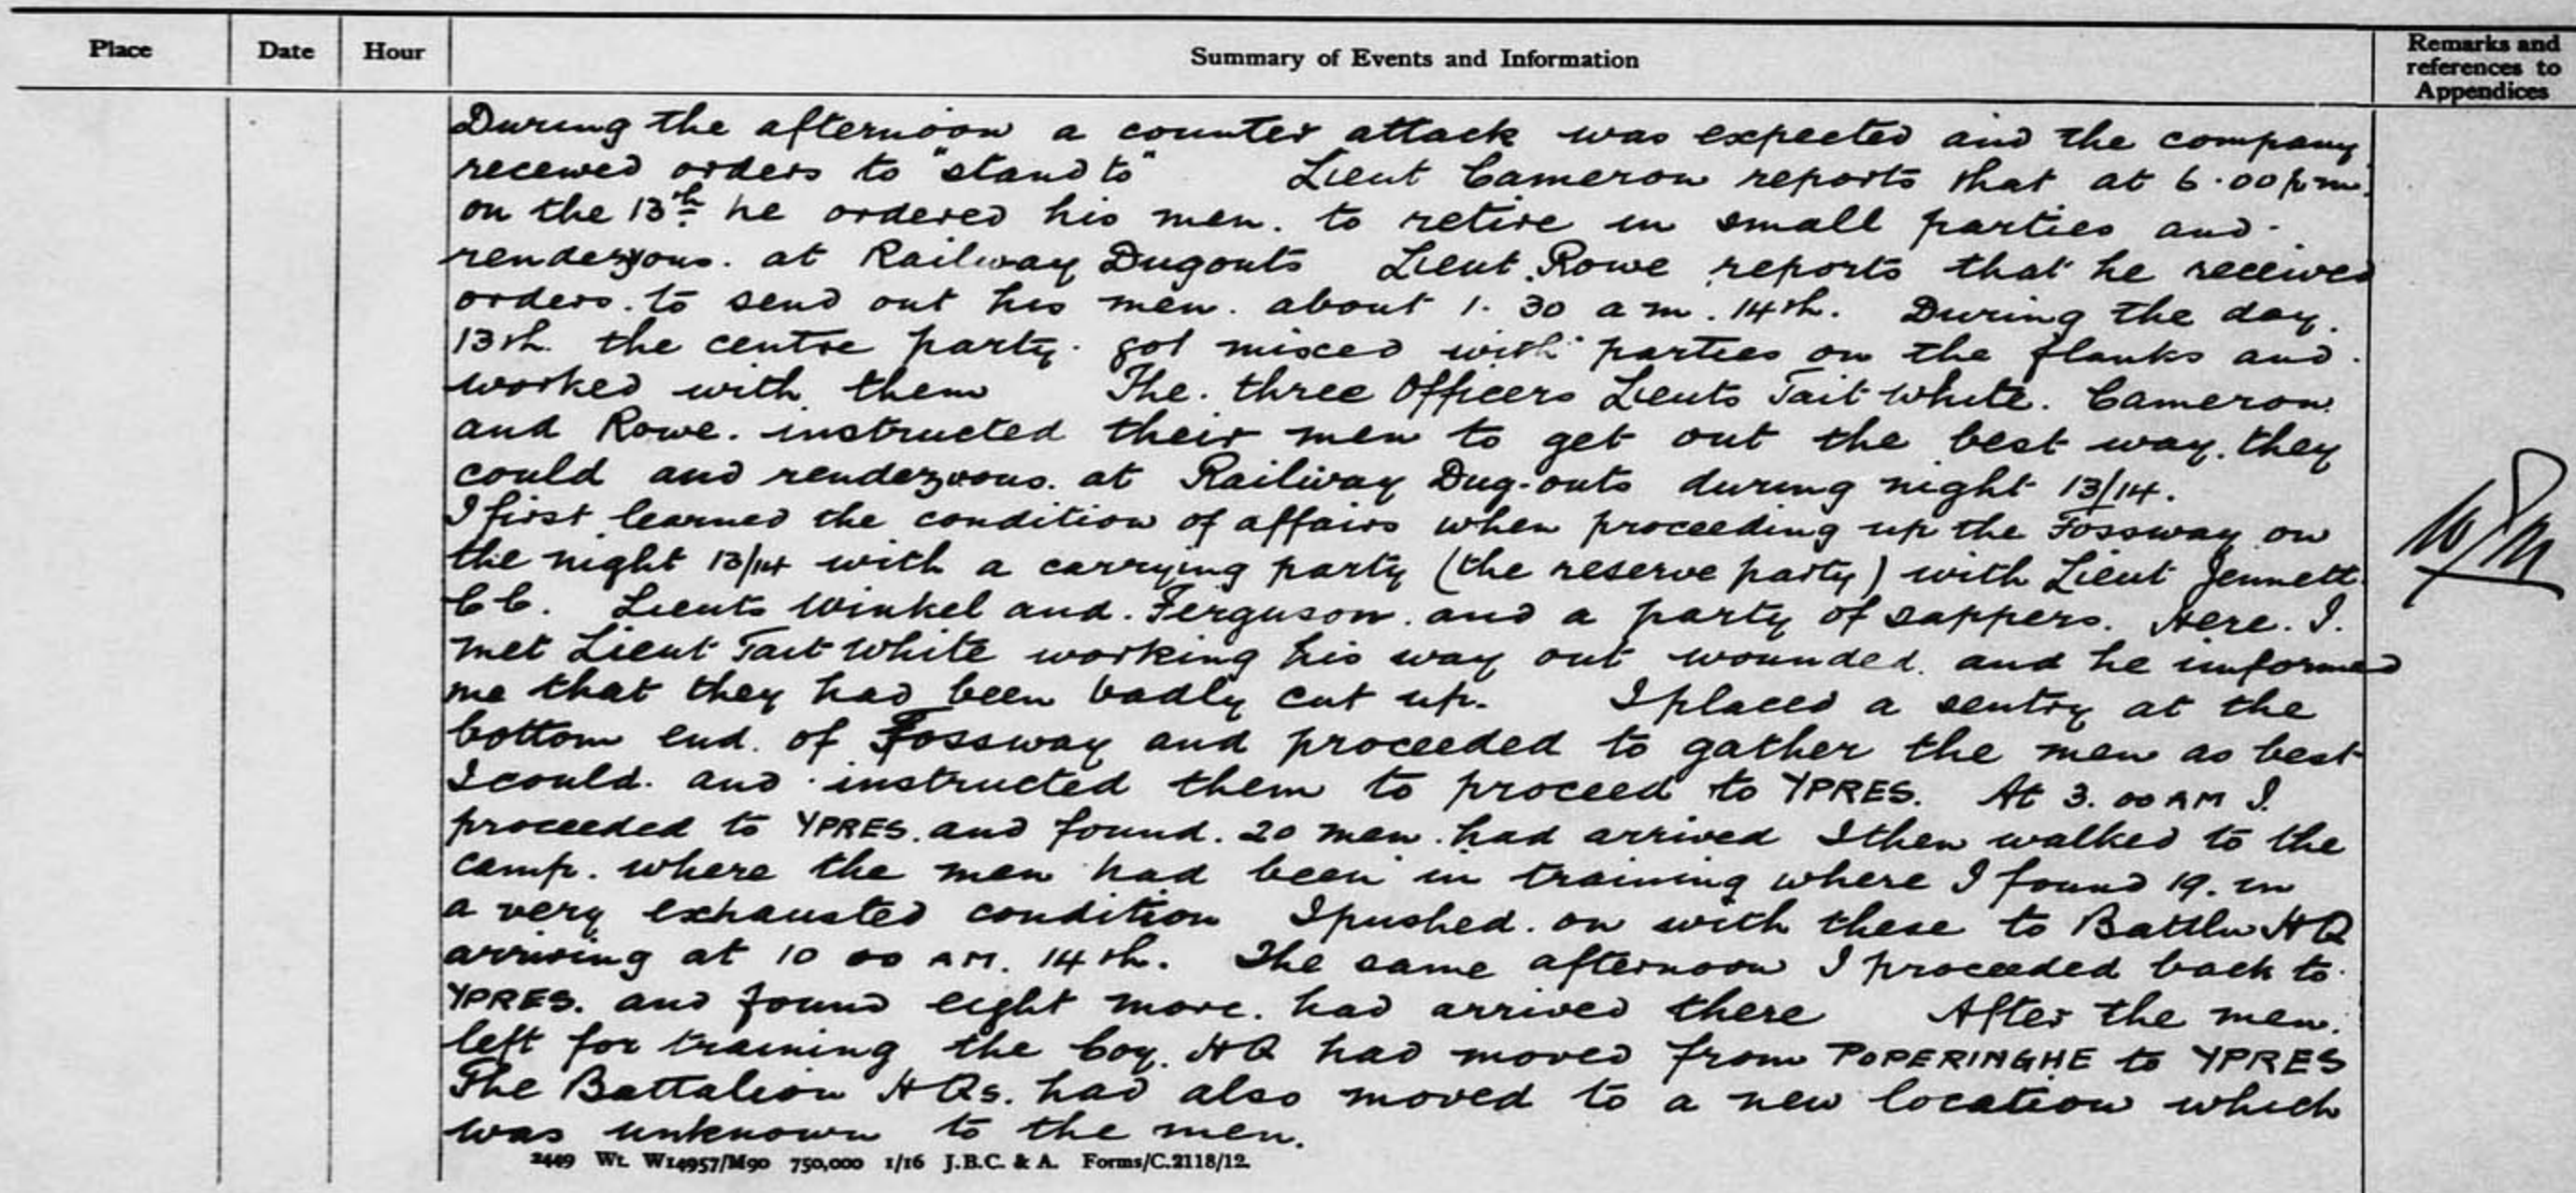 Place Date Hour Summary of Events and Information Remarks and references to Appendices
During the afternoon a counter attack was expected and the company
received orders to "stand to" Lieut Cameron reports that at 6.00 p.m.
on the 13th he ordered his men. to retire in small parties and
rendezvous. at Railway Dugouts Lieut Rowe reports that he received
orders. to send out his men. about 1.30 a m. 14th. During the day.
13th. the centre party. got mixed with parties on the flanks and
worked with them The three Officers Lieuts Tait-White. Cameron
and Rowe. instructed their men to get out the best way. they
could and rendezvous. at Railway Dug-outs during night 13/14.
I first learned the condition of affairs when proceeding up the Fossway on
the night 13/14 with a carrying party (the reserve party) with Lieut Jennett
CC. Lieuts Winkel and. Ferguson. and a party of sappers. Here. I.
met Lieut Tait White working his way out wounded. and he informed
me that they had been badly cut up. I placed a sentry at the
bottom end. of Fossway and proceeded to gather the men as best
I could. and instructed them to proceed to YPRES. At 3.00 AM I.
proceeded to YPRES. and found. 20 men. had arrived I then walked to the
camp. where the men had been in training where I found 19. in
a very exhausted condition I pushed. on with these to Battln HQ
arriving at 10 00 AM. 14th. The same afternoon I proceeded back to
YPRES. and found eight more. had arrived there After the men.
left for training the Coy. HQ had moved from POPERINGHE to YPRES
The Battalion HQs. had also moved to a new location which
was unknown to the men.
2449 Wt. W14957/M90 750,000 1/16 J.B.C. & A. Forms/C.2118/12.